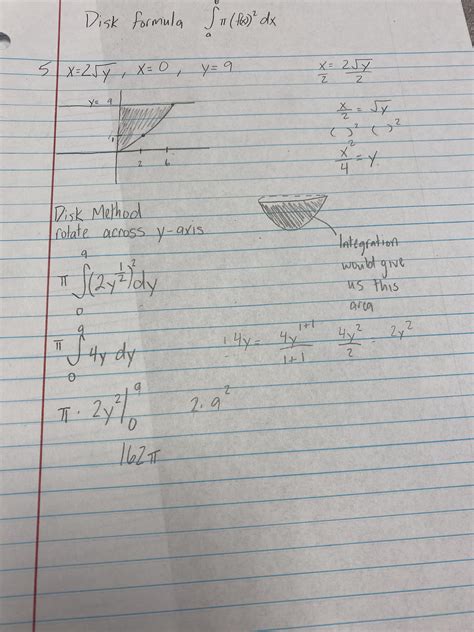 Disk formula ∫ₐᵇ π(f(x))² dx
5 x=2√y , x=0 , y=9
x/2 = 2√y/2
x/2 = √y
( )² ( )²
x²/4 = y
y= 9
1
2 6
Disk Method
rotate across y-axis
Integration
would give
us this
area
π ∫₀⁹ (2y^(1/2))² dy
π ∫₀⁹ 4y dy
4y = 4y^(1+1)/(1+1) 4y²/2 = 2y²
π · 2y²|₀⁹ 2·9²
162π